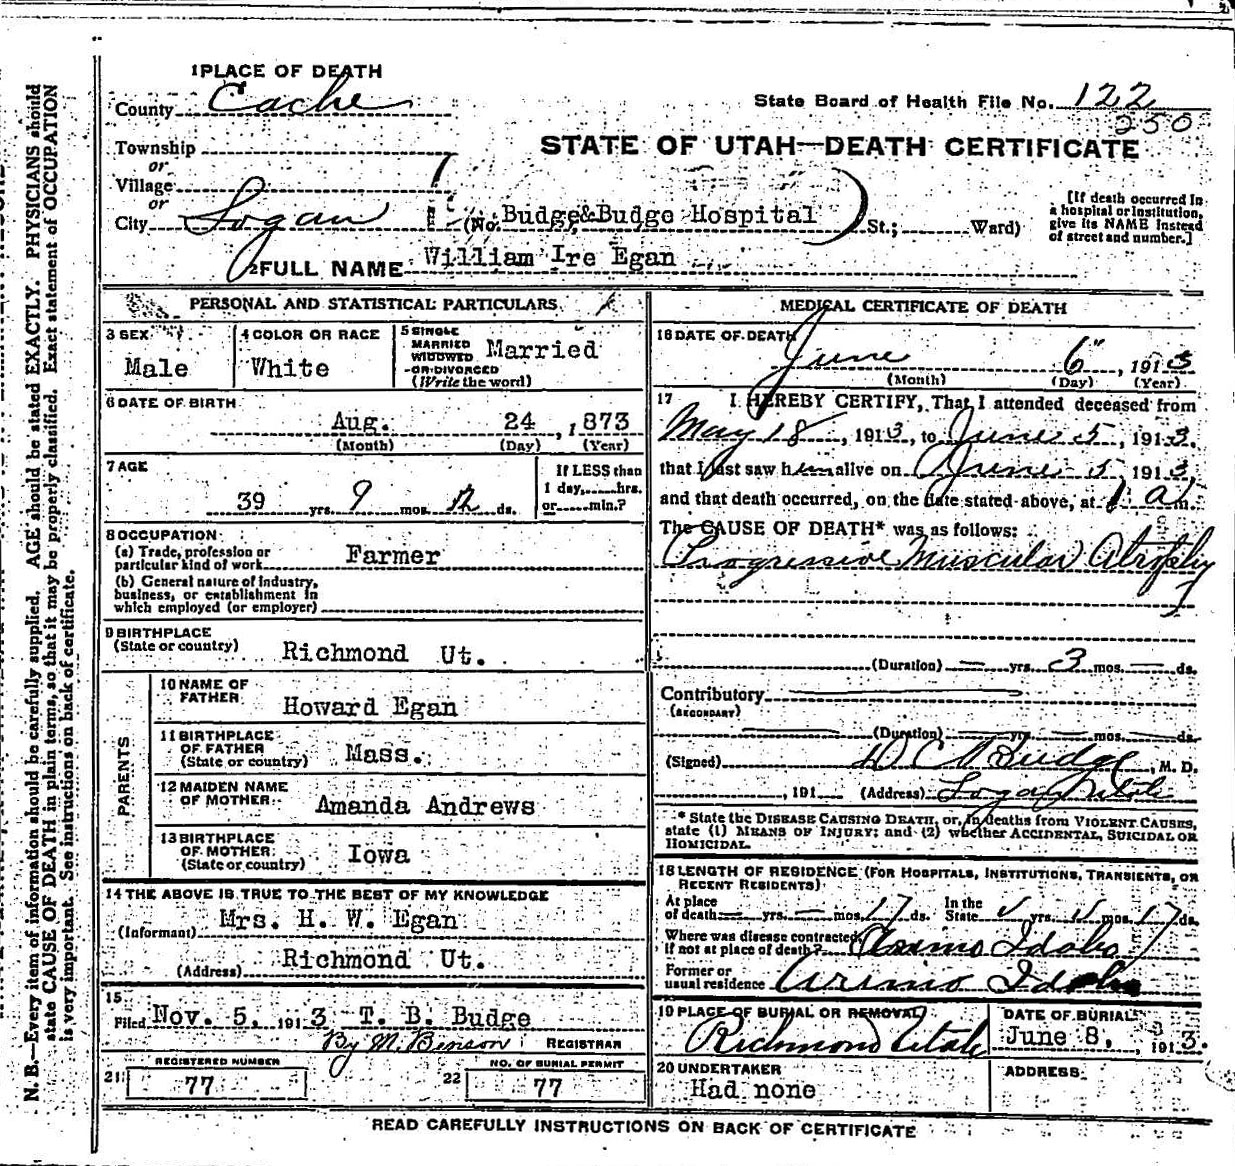 1 PLACE OF DEATH
County Cache
State Board of Health File No. 122
250
Township
or
Village
or
City Logan
STATE OF UTAH—DEATH CERTIFICATE
(No. Budge&Budge Hospital) St.; Ward)
[If death occurred in
a hospital or institution,
give its NAME instead
of street and number.]
2 FULL NAME William Ire Egan
PERSONAL AND STATISTICAL PARTICULARS
3 SEX
Male
4 COLOR OR RACE
White
5 SINGLE
MARRIED
WIDOWED
OR DIVORCED
(Write the word)
Married
6 DATE OF BIRTH
Aug. 24, 1873
(Month) (Day) (Year)
7 AGE
39 yrs. 9 mos. 12 ds.
If LESS than
1 day, hrs.
or min.?
8 OCCUPATION
(a) Trade, profession or
particular kind of work Farmer
(b) General nature of industry,
business, or establishment in
which employed (or employer)
9 BIRTHPLACE
(State or country) Richmond Ut.
PARENTS
10 NAME OF
FATHER Howard Egan
11 BIRTHPLACE
OF FATHER
(State or country) Mass.
12 MAIDEN NAME
OF MOTHER Amanda Andrews
13 BIRTHPLACE
OF MOTHER
(State or country) Iowa
14 THE ABOVE IS TRUE TO THE BEST OF MY KNOWLEDGE
(Informant) Mrs. H. W. Egan
(Address) Richmond Ut.
15
Filed Nov. 5, 1913 T. B. Budge
By M. Benson REGISTRAR
REGISTERED NUMBER
21 77
NO. OF BURIAL PERMIT
22 77
MEDICAL CERTIFICATE OF DEATH
16 DATE OF DEATH
June 6", 1913
(Month) (Day) (Year)
17 I HEREBY CERTIFY, That I attended deceased from
May 18, 1913, to June 5, 1913.
that I last saw him alive on June 5, 1913
and that death occurred, on the date stated above, at 1 a m.
The CAUSE OF DEATH* was as follows:
Progressive Muscular Atrophy
(Duration) — yrs. 3 mos. — ds.
Contributory
(SECONDARY)
(Duration) — yrs. — mos. — ds.
(Signed) D C Budge, M. D.
, 191 (Address) Logan Utah
* State the DISEASE CAUSING DEATH, or, in deaths from VIOLENT CAUSES,
state (1) MEANS OF INJURY; and (2) whether ACCIDENTAL, SUICIDAL OR
HOMICIDAL.
18 LENGTH OF RESIDENCE (FOR HOSPITALS, INSTITUTIONS, TRANSIENTS, OR
RECENT RESIDENTS)
At place
of death — yrs. — mos. 17 ds.
In the
State yrs. mos. 17 ds.
Where was disease contracted,
if not at place of death? Arimo Idaho
Former or
usual residence Arimo Idaho
19 PLACE OF BURIAL OR REMOVAL
Richmond Utah
DATE OF BURIAL
June 8, 1913.
20 UNDERTAKER
Had none
ADDRESS
READ CAREFULLY INSTRUCTIONS ON BACK OF CERTIFICATE
N. B.—Every item of information should be carefully supplied. AGE should be stated EXACTLY. PHYSICIANS should
state CAUSE OF DEATH in plain terms, so that it may be properly classified. Exact statement of OCCUPATION
is very important. See instructions on back of certificate.